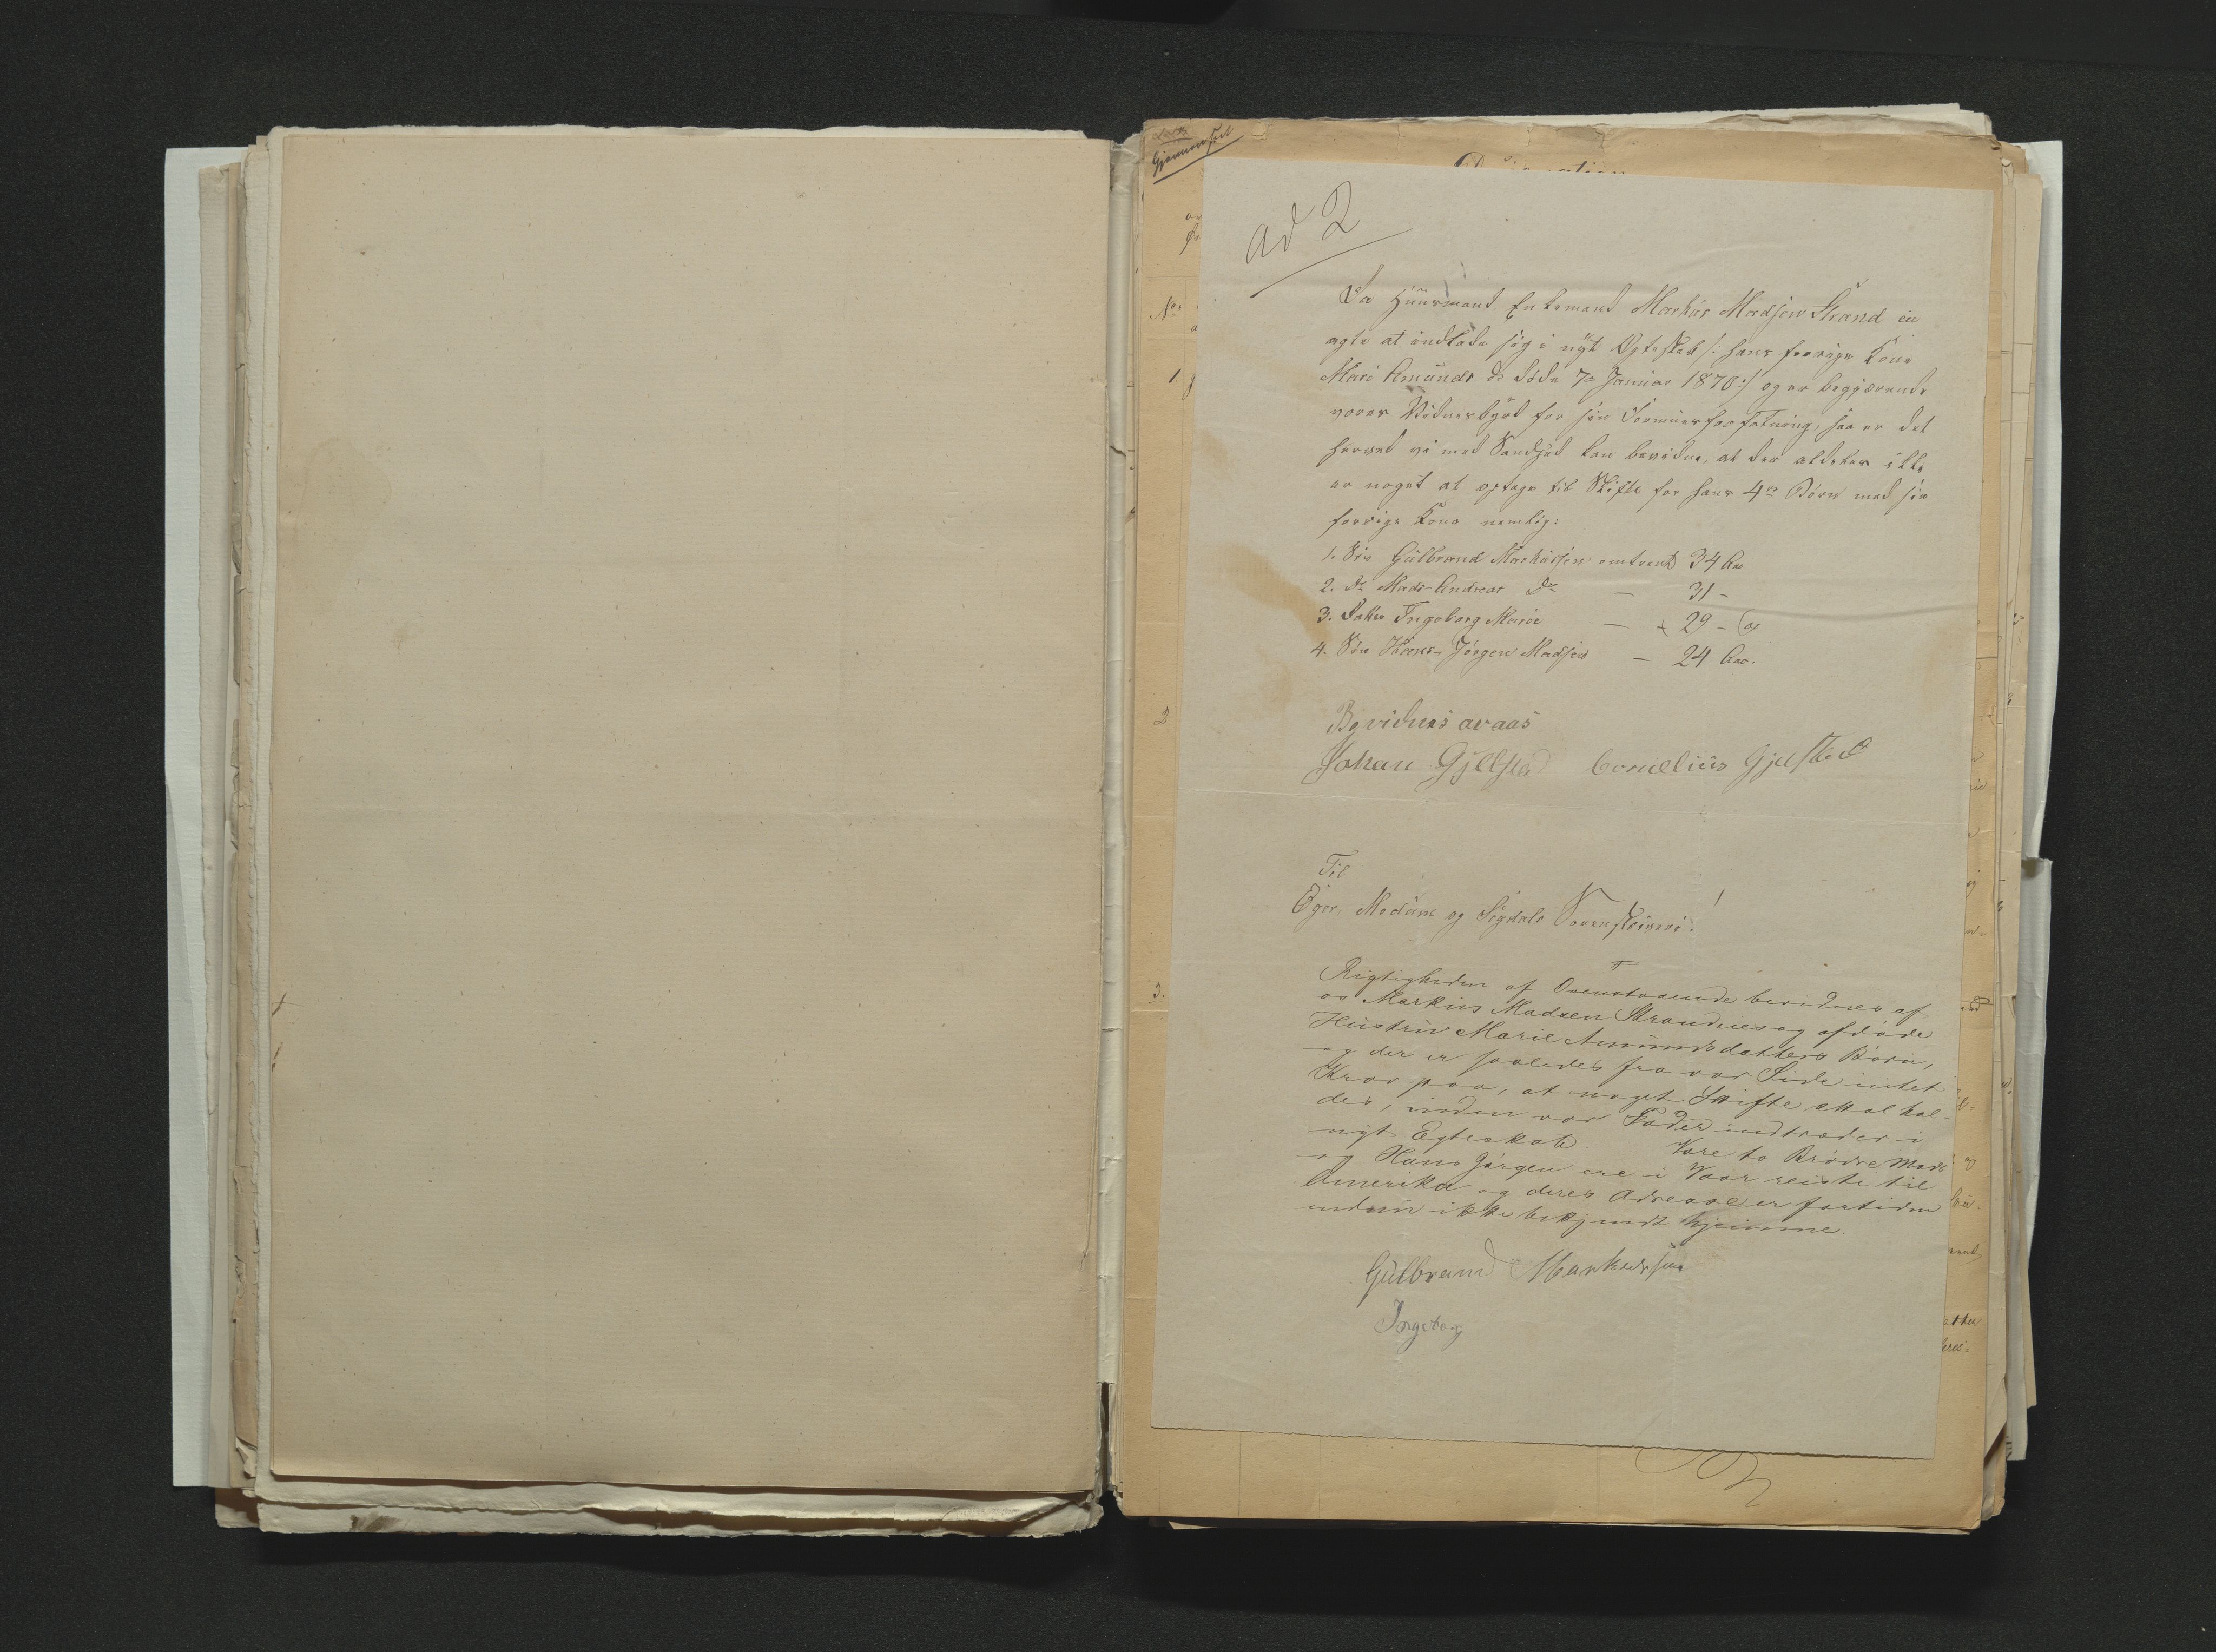 Gjennemseet
ad 2
Da Huusmand Enkemand Markus Madsen Strand en
agte at indlade sig i nyt Ægteskab /: hans forrige Kone
Mari Amunds d: døde 7de Januar 1870 :/ og er begjærende
vores Vidnesbyrd for sin Formuesforfatning, saa er det
herved vi med Sandhed kan bevidne, at der aldeles ikke
er noget at optage til Skifte for hans 4re Børn med sin
forrige Kone nemlig:
1. Søn Gulbrand Markussen omtrent 34 Aar
2. Do Mads Andreas Do — 31 -
3. Datter Ingeborg Marie — 29 -
4. Søn Hans Jørgen Madsen — 24 Aar.
Bevidnes av aas
Johan Gjelsted Cornelius Gjelsted
Til
Eger, Modum og Sigdals Sorenskriveri!
Rigtigheden af Ovenstaaende bevidnes af
os Markus Madsen Strandies og afdøde
Hustru Marie Amundsdatters Børn,
og der er saaledes fra vor Side intet
Krav paa, at noget Skifte skal hol-
des, inden vor Fader indtræder i
nyt Egteskab Vore to Brødre Mads
og Hans Jørgen ere i Vaar reiste til
Amerika og deres Adresse er fortiden
endnu ikke bekjendt hjemme
Gulbrand Markussen
Ingeborg
No
1.
2
3.